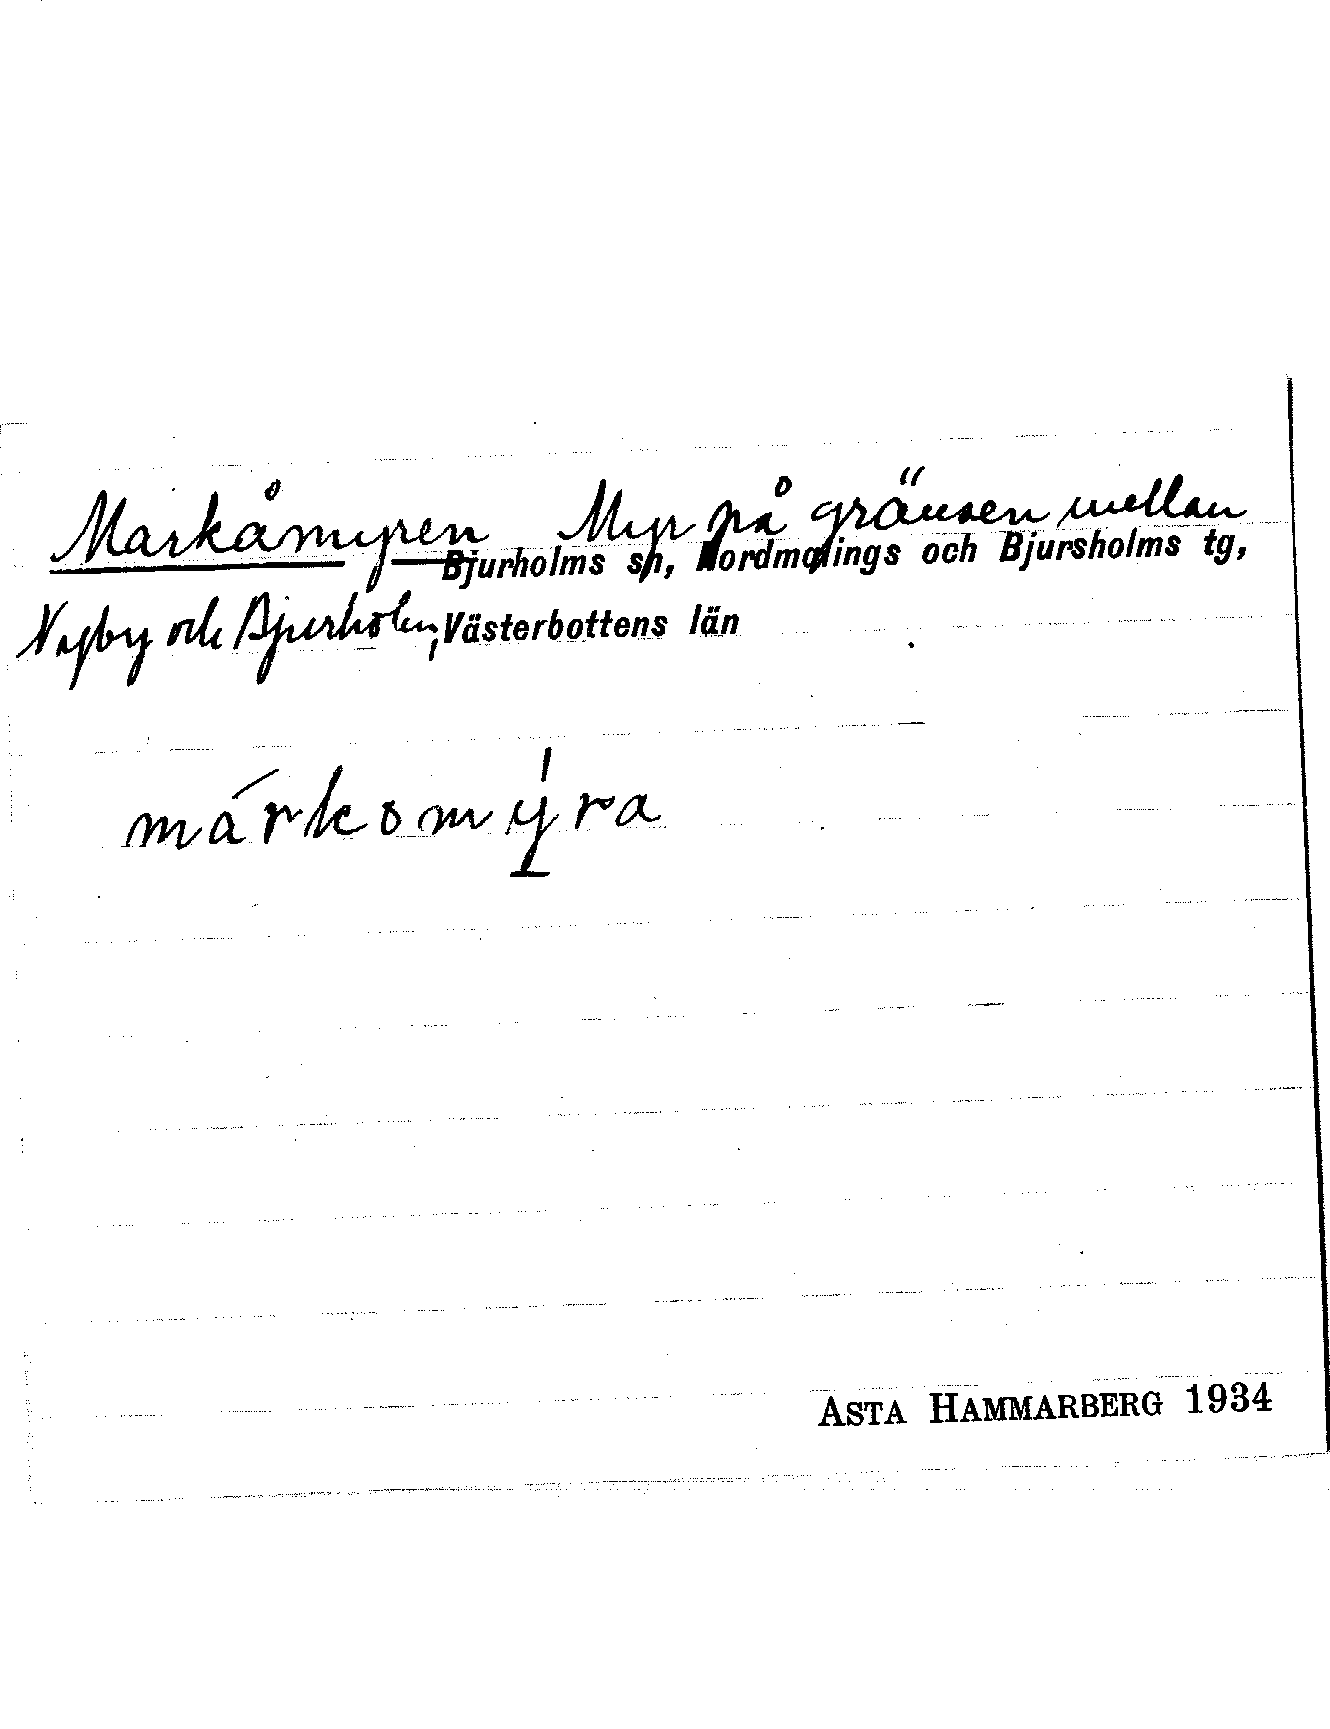 Markåmyren Myr på gränsen mellan
Bjurholms sn, Nordmalings och Bjursholms tg,
Nyby och Bjurholm, Västerbottens län
márkomýra
ASTA HAMMARBERG 1934